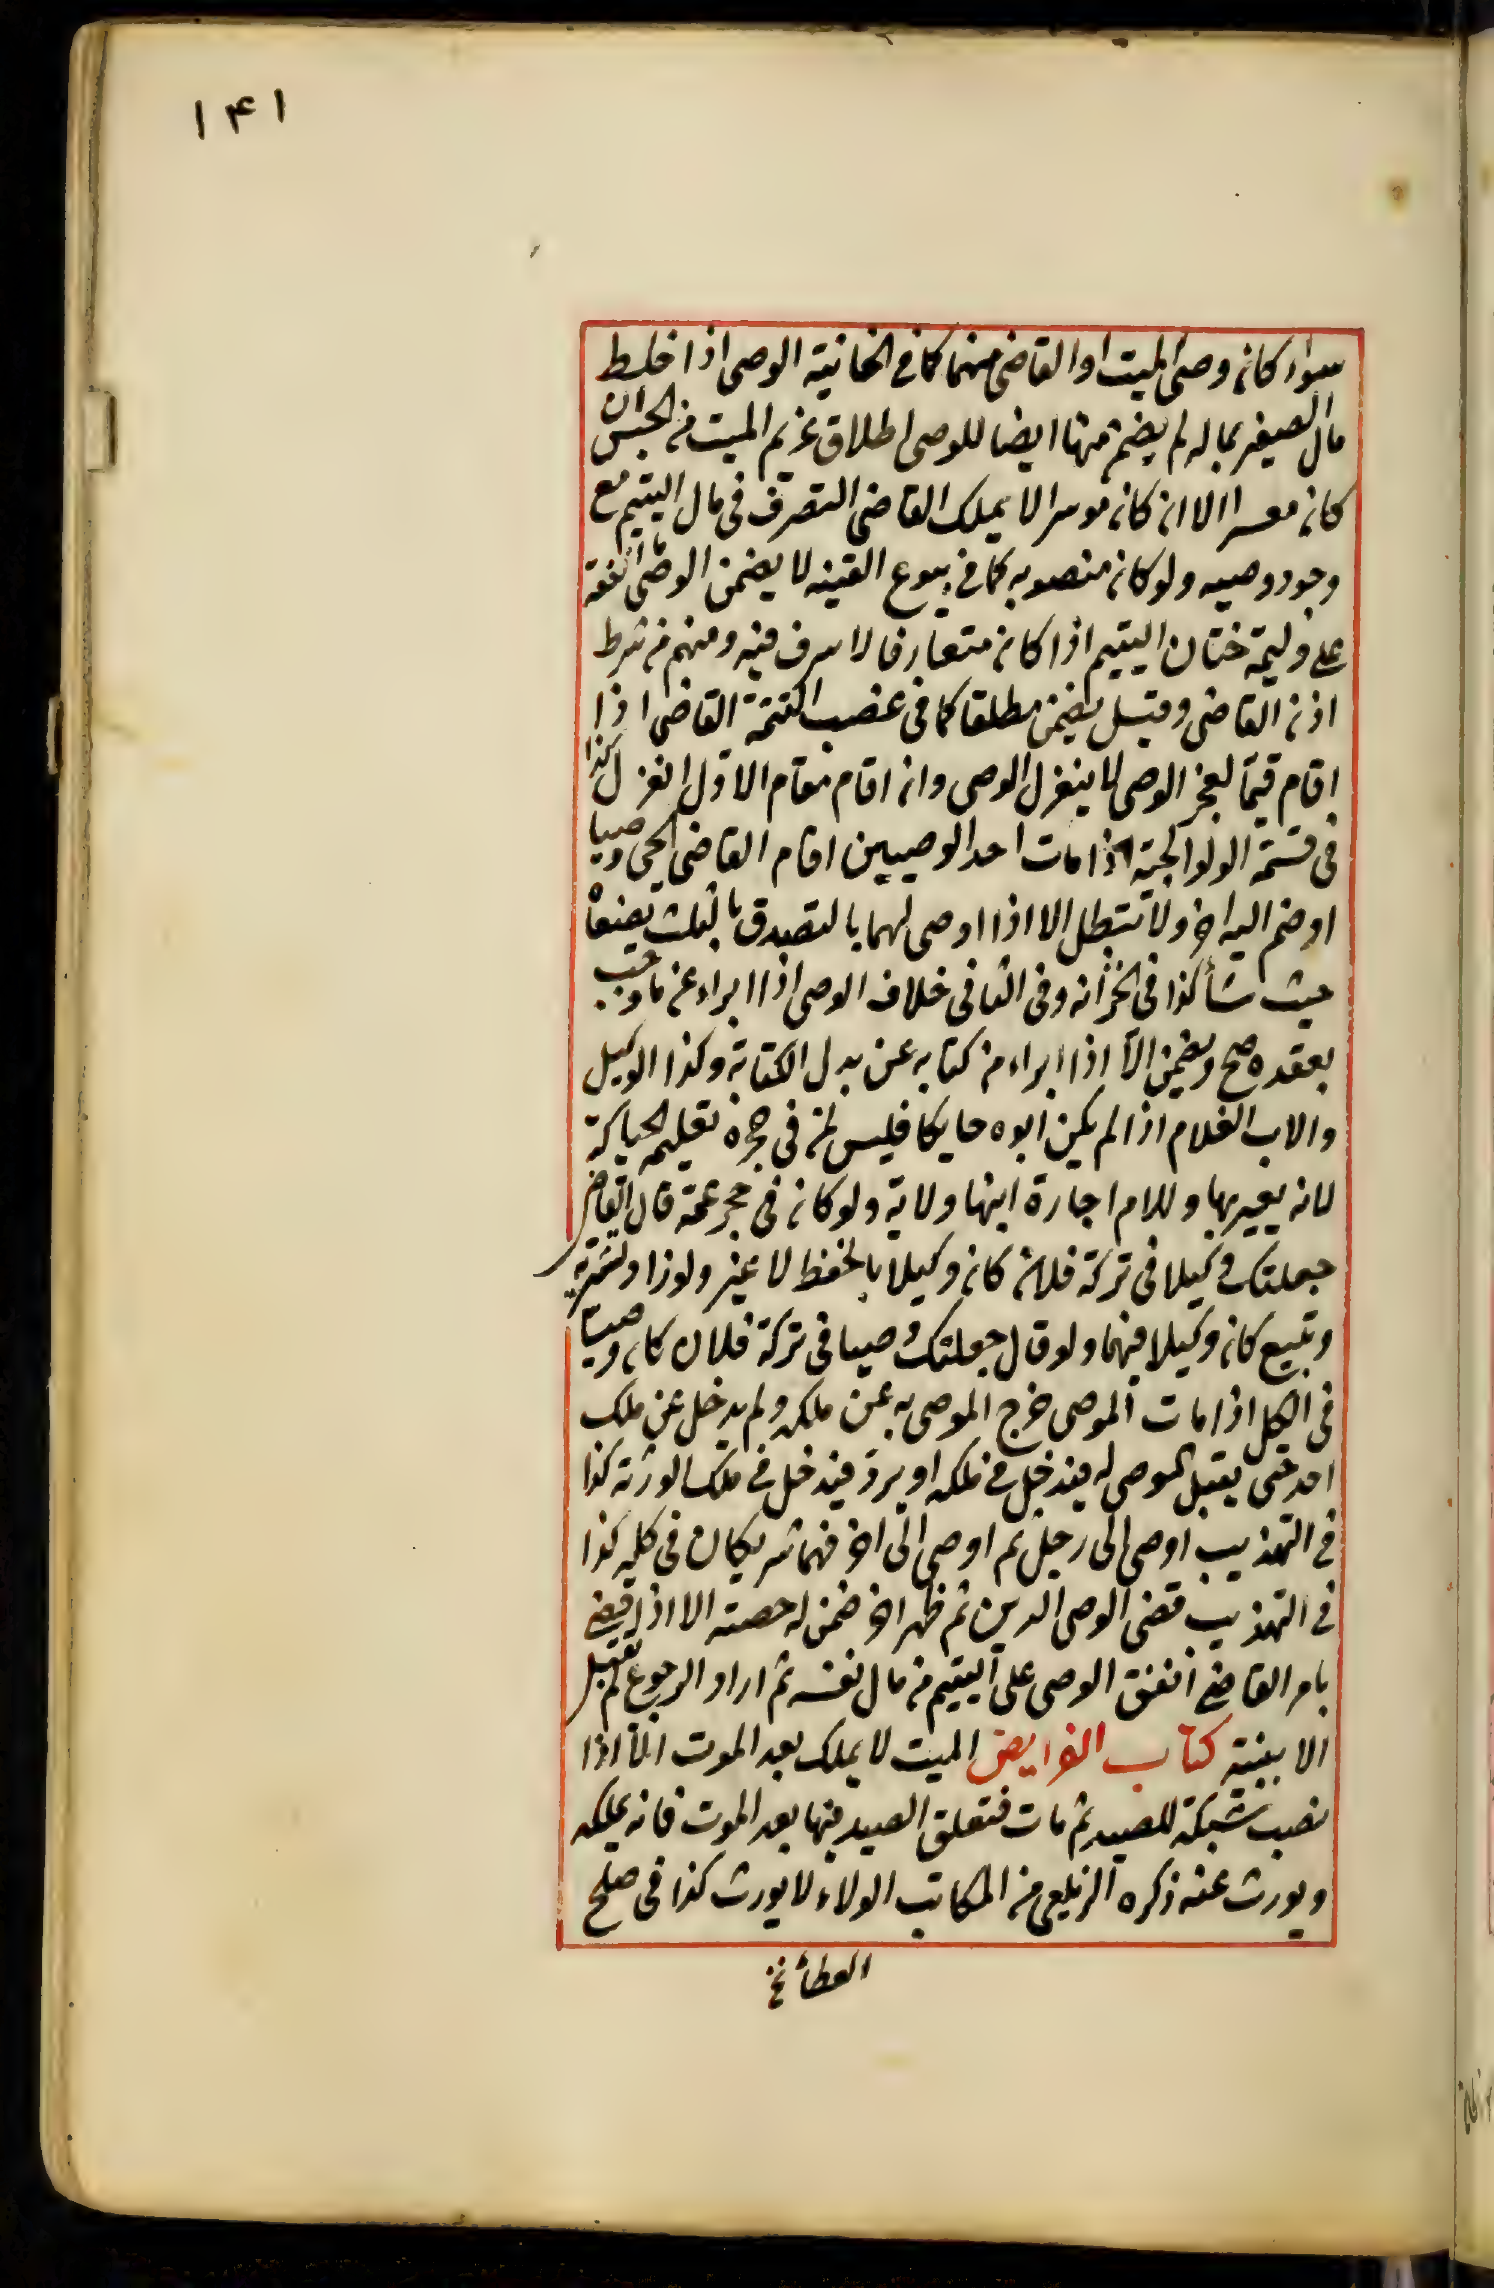 ١٤١
سواء كان وصى الميت او القاضى منهما كما فى الخانية الوصى اذا خلط
مال الصغير بماله لم يضمن منها ايضا للوصى اطلاق غريم الميت من الحبس ان
كان معسرا الا ان كان موسرا لا يملك القاضى التصرف فى مال اليتيم مع
وجود وصيه ولو كان منصوبه كما فى بيوع القنيه لا يضمن الوصى ما انفقه
على وليمة ختان اليتيم اذا كان متعارفا لا سرف فيه ومنهم من شرط
اذن القاضى وقيل يضمن مطلقا كما فى غصب اليتيمة القاضى اذا
اقام قيما لعجز الوصى لا ينعزل الوصى وان اقام مقام الاول انعزل كذا
فى قسمة الولوالجية اذا مات احد الوصيين اقام القاضى الحى وصيا
او ضم اليه اخر ولا تبطل الا اذا اوصى لهما بالتصدق بالثلث يضعاه
حيث شأ كذا فى الخزانه وفى الثانى خلاف الوصى اذا ابراء عن ما وجب
بعقده صح ويضمن الا اذا ابراء من كتابه عن بدل الكتابة وكذا الوكيل
والاب الغلام اذا لم يكن ابوه حايكا فليس لمن فى حجره تعليمه الحياكة
لانه يعير بها وللام اجارة ابنها ولاية ولو كان فى حجر عمته قال القاضى
جعلتك وكيلا فى تركة فلان كان وكيلا بالحفظ لا غير ولو زاد وتشتريه
وتبيع كان وكيلا فيهما ولو قال جعلتك وصيا فى تركة فلان كان وصيا
فى الكل اذا مات الموصى خرج الموصى به عن ملكه ولم يدخل عن ملك
احد حتى يقبل الموصى له فيدخل فى ملكه او يرد فيدخل فى ملك الورثة كذا
فى التهذيب اوصى الى رجل ثم اوصى الى اخر فهما شريكان فى كله كذا
فى التهذيب قضى الوصى الدين ثم ظهر اخر ضمن له حصته الا اذا قضى
بامر القاضى انفق الوصى على اليتيم من مال نفسه ثم اراد الرجوع لم يقبل
الا ببينة كتاب الفرايض الميت لا يملك بعد الموت الا اذا
نصب شبكة للصيد ثم مات فتعلق الصيد فيها بعد الموت فانه يملكه
ويورث عنه ذكره الزيلعى من المكاتب الولاء لا يورث كذا فى صلح